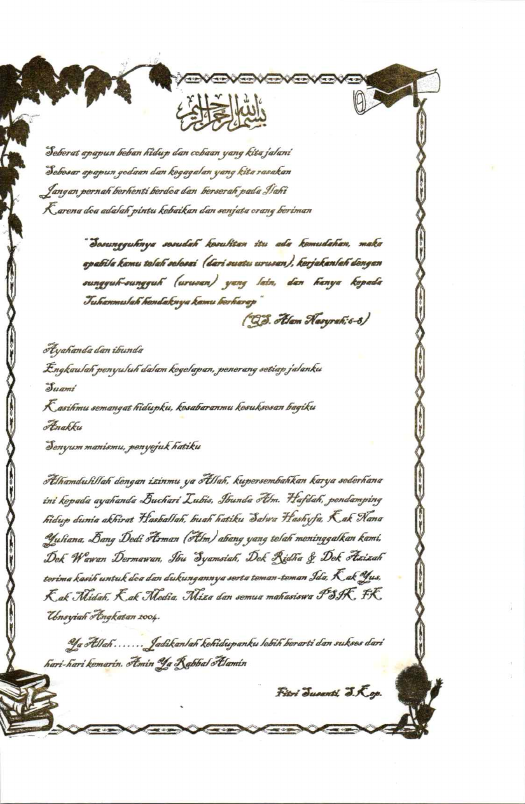 بسم الله الرحمن الرحيم
Seberat apapun beban hidup dan cobaan yang kita jalani
Sebesar apapun godaan dan kegagalan yang kita rasakan
Jangan pernah berhenti berdoa dan berserah pada Ilahi
Karena doa adalah pintu kebaikan dan senjata orang beriman
"Sesungguhnya sesudah kesulitan itu ada kemudahan, maka
apabila kamu telah selesai (dari suatu urusan), kerjakanlah dengan
sungguh-sungguh (urusan) yang lain, dan hanya kepada
Tuhanmulah hendaknya kamu berharap"
(QS. Alam Nasyrah:6-8)
Ayahanda dan ibunda
Engkaulah penyuluh dalam kegelapan, penerang setiap jalanku
Suami
Kasihmu semangat hidupku, kesabaranmu kesuksesan bagiku
Anakku
Senyum manismu, penyejuk hatiku
Alhamdulillah dengan izinmu ya Allah, kupersembahkan karya sederhana
ini kepada ayahanda Buchari Lubis, Ibunda Alm. Hafdah, pendamping
hidup dunia akhirat Hasballah, buah hatiku Salwa Hashyfa, Kak Nana
Yuliana, Bang Dedi Arman (Alm) abang yang telah meninggalkan kami,
Dek Wawan Dermawan, Ibu Syamsiah, Dek Ridha & Dek Azizah
terima kasih untuk doa dan dukungannya serta teman-teman Ida, Kak Yus,
Kak Midah, Kak Media, Miza dan semua mahasiswa PSIK FK
Unsyiah Angkatan 2004.
Ya Allah ....... Jadikanlah kehidupanku lebih berarti dan sukses dari
hari-hari kemarin. Amin Ya Rabbal Alamin
Fitri Susanti, S.Kep.